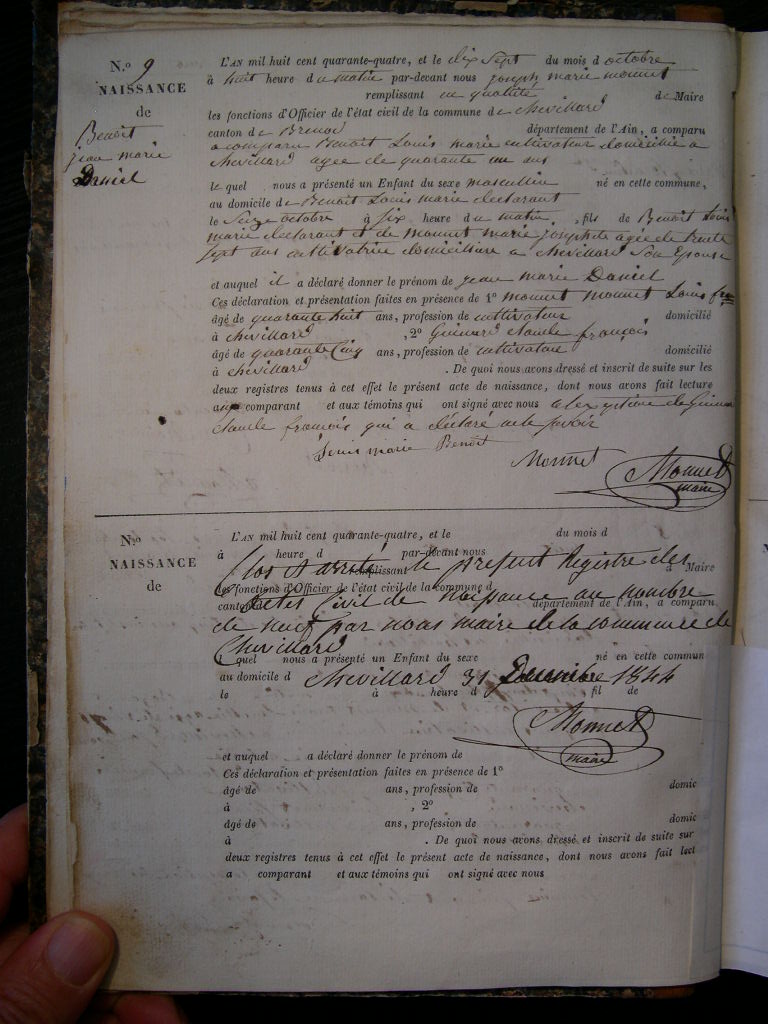 N.º 9
NAISSANCE
de
Benoit
jean marie
Daniel
L'AN mil huit cent quarante-quatre, et le dix sept du mois d octobre
à huit heure du matin par-devant nous joseph marie monnet
remplissant en qualité de Maire
les fonctions d'Officier de l'état civil de la commune de chevillard
canton de Brenod département de l'Ain, a comparu
a comparu Benoit Louis marie cultivateur domicilié a
chevillard agee de quarante un ans
le quel nous a présenté un Enfant du sexe masculin né en cette commune,
au domicile de Benoit Louis marie declarant
le Seize octobre à Six heure du matin , fils de Benoit Louis
marie declarant et de monnet marie josephte agée de trente
sept ans cultivatrice domiciliée a chevillard Son Epouse
et auquel il a déclaré donner le prénom de jean marie Daniel
Ces déclaration et présentation faites en présence de 1º monnet monnet Louis
âgé de quarante huit ans, profession de cultivateur domicilié
à chevillard , 2º Guinard claude françois
âgé de quarante Cinq ans, profession de cultivateur domicilié
à chevillard . De quoi nous avons dressé et inscrit de suite sur les
deux registres tenus à cet effet le présent acte de naissance, dont nous avons fait lecture
aux comparant et aux témoins qui ont signé avec nous a de
claude francois qui a déclaré ne le savoir
Louis marie Benoit
Monnet
Monnet
maire
N.º
NAISSANCE
de
L'AN mil huit cent quarante-quatre, et le du mois d
à heure d par-devant nous
Clos et arrêté le present Registre des
remplissant d Maire
les fonctions d'Officier de l'état civil de la commune d
actes Civil de Naissance au nombre
canton d département de l'Ain, a comparu
de neuf par nous maire de la commune de
Chevillard
quel nous a présenté un Enfant du sexe né en cette commun
au domicile d chevillard 31 Decembre 1844
le à heure d fil de
Monnet
maire
et auquel a déclaré donner le prénom de
Ces déclaration et présentation faites en présence de 1º
âgé de ans, profession de domic
à , 2º
âgé de ans, profession de domic
à . De quoi nous avons dressé et inscrit de suite sur
deux registres tenus à cet effet le présent acte de naissance, dont nous avons fait lect
a comparant et aux témoins qui ont signé avec nous